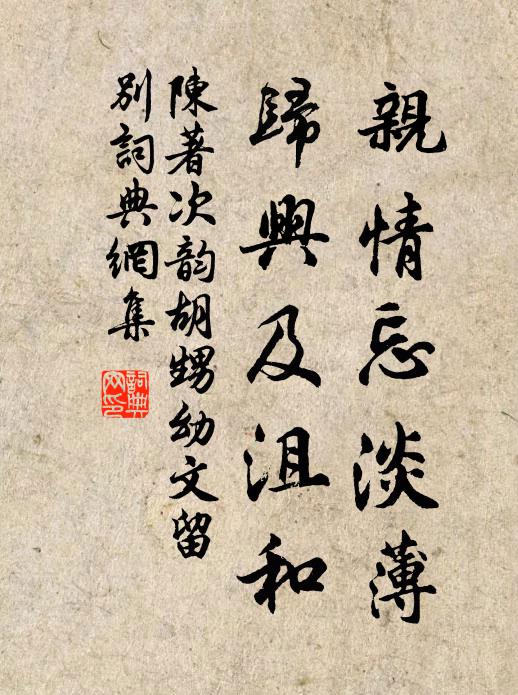 親情忘淡薄
歸興及沮和
陳著次韵胡甥幼文留
別詞典網集
詞典
网印